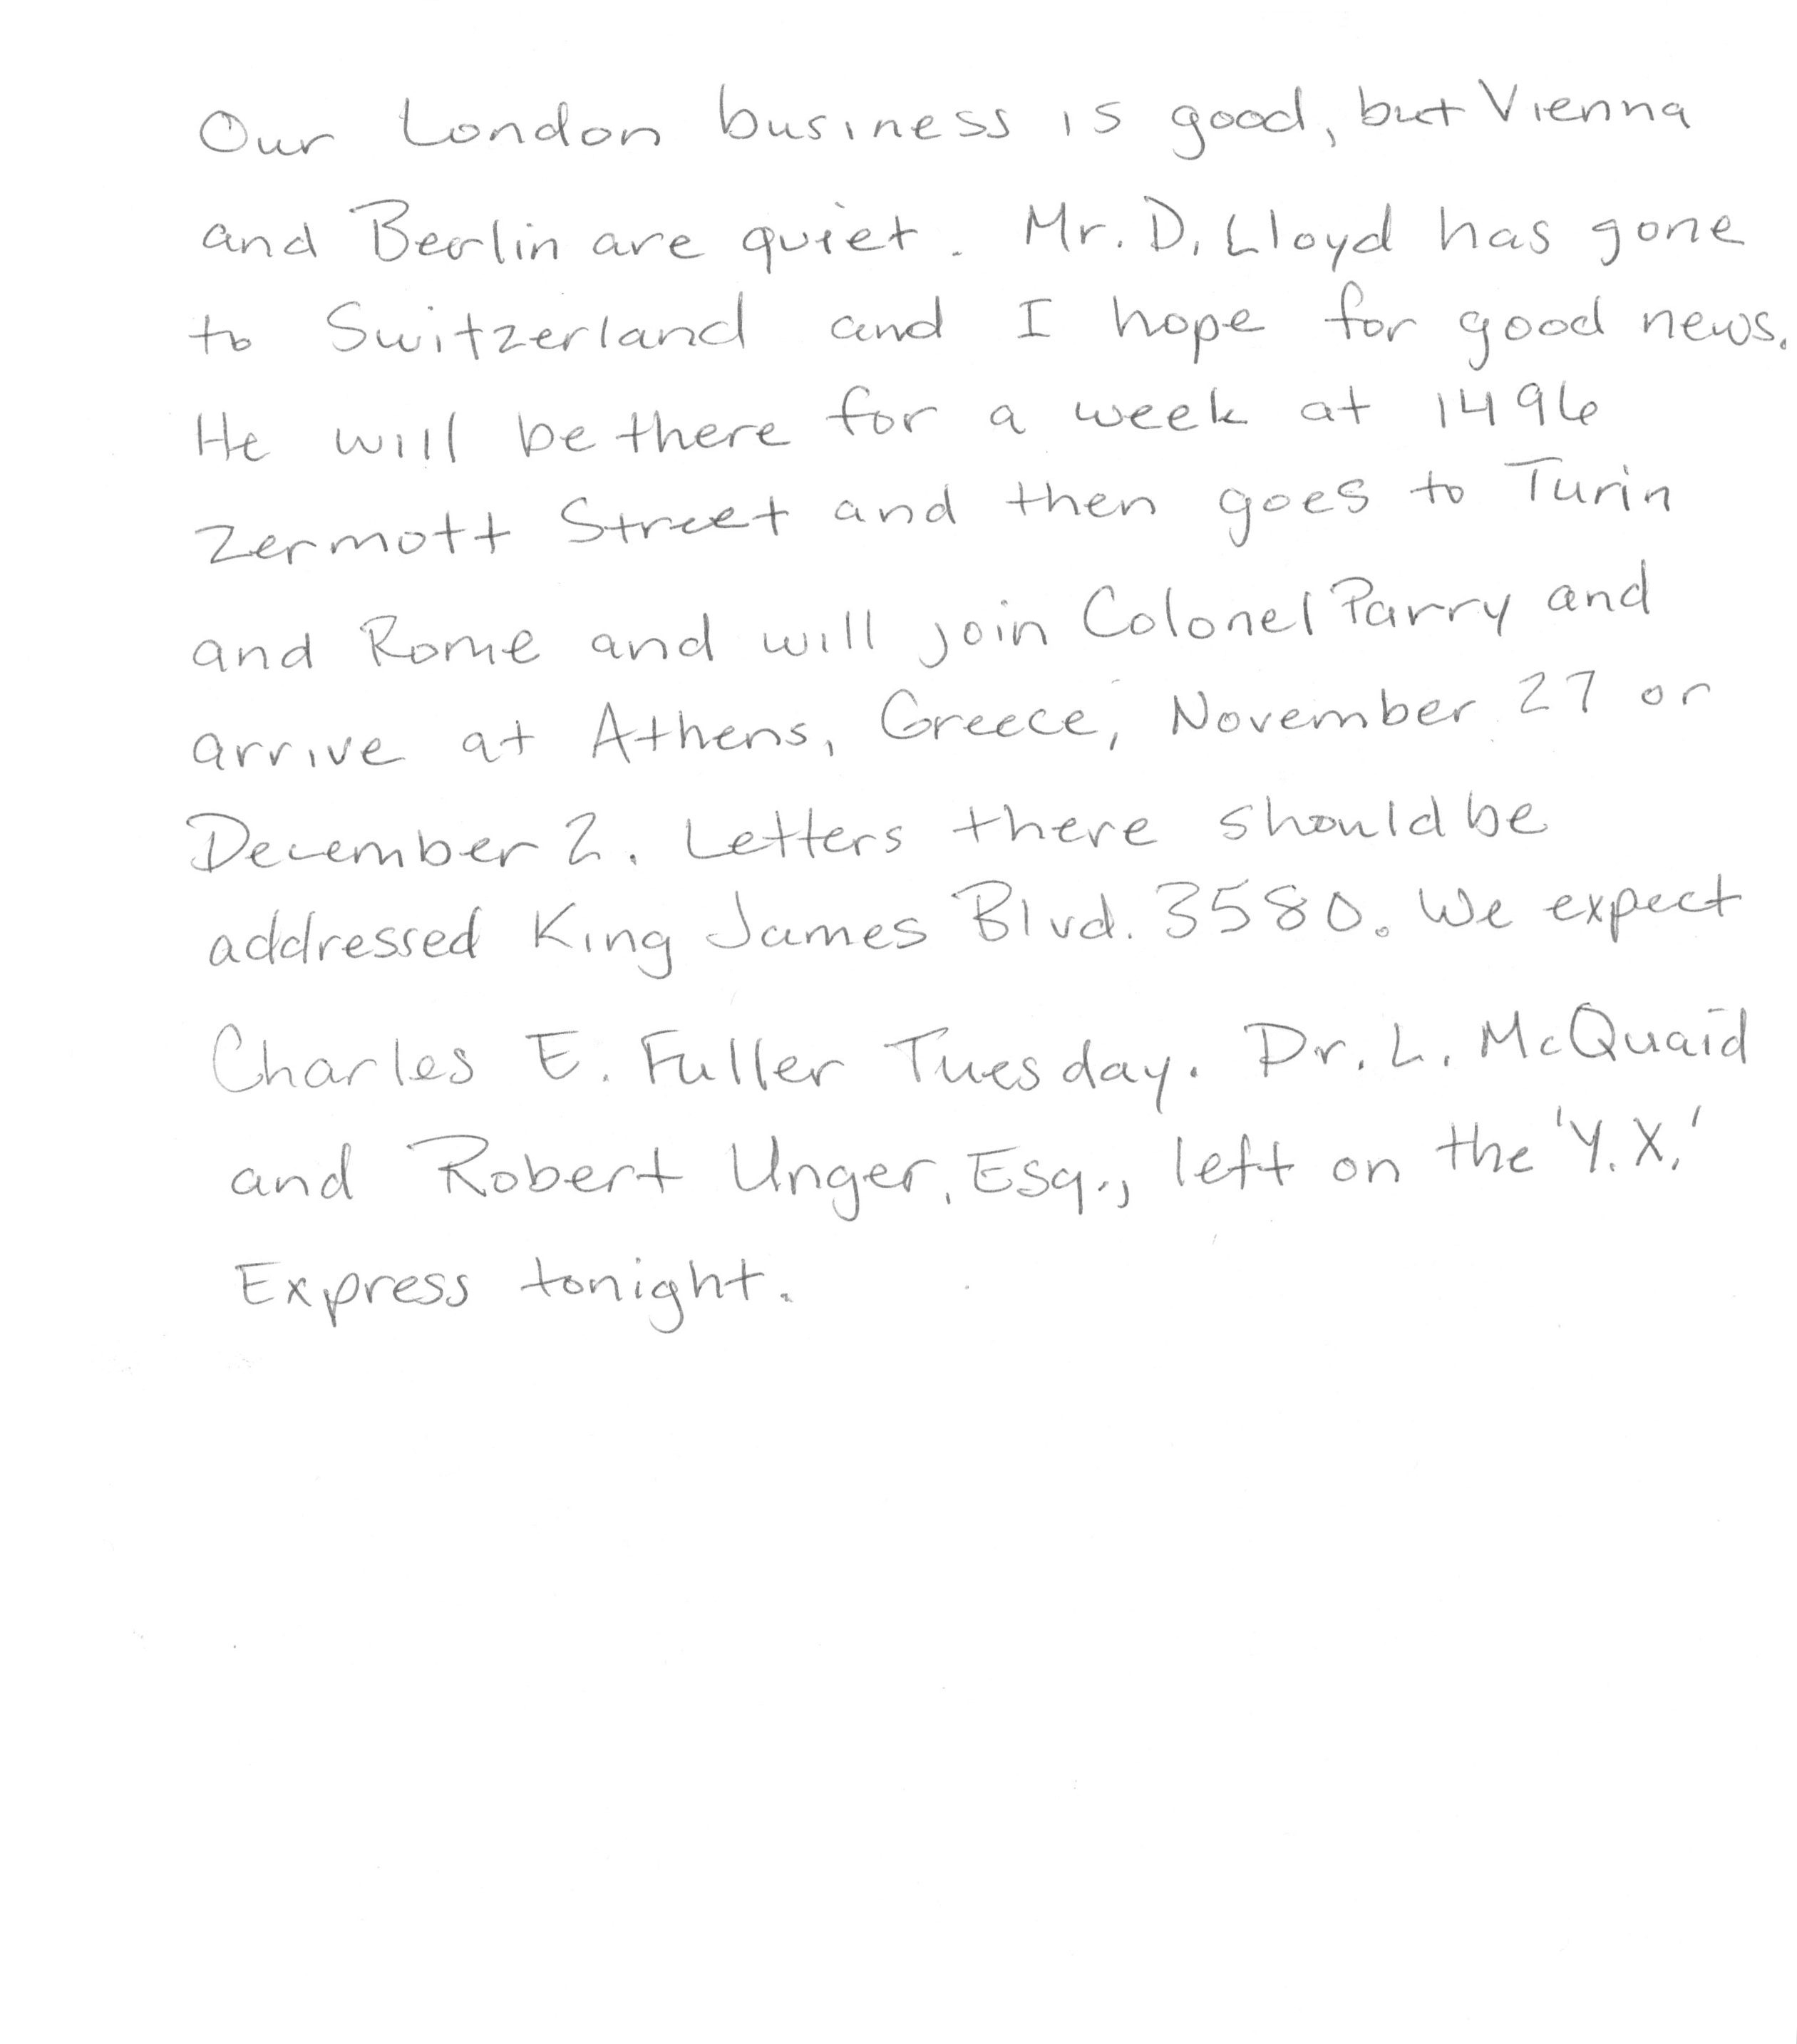 Our London business is good, but Vienna
and Berlin are quiet. Mr. D. Lloyd has gone
to Switzerland and I hope for good news.
He will be there for a week at 1496
Zermott Street and then goes to Turin
and Rome and will join Colonel Parry and
arrive at Athens, Greece, November 27 or
December 2. Letters there should be
addressed King James Blvd. 3580. We expect
Charles E. Fuller Tuesday. Dr. L. McQuaid
and Robert Unger, Esq., left on the 'Y.X.'
Express tonight.